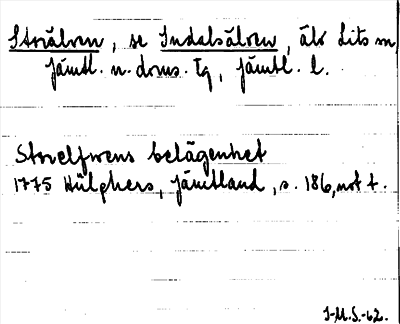 Storälven, se Indalsälven, älv Lits sn,
Jämtl. n. doms. tg, Jämtl. l.
Storelfwens belägenhet
1775 Hülphers, Jämtland, s. 186, not t.
I-M.S.-62.